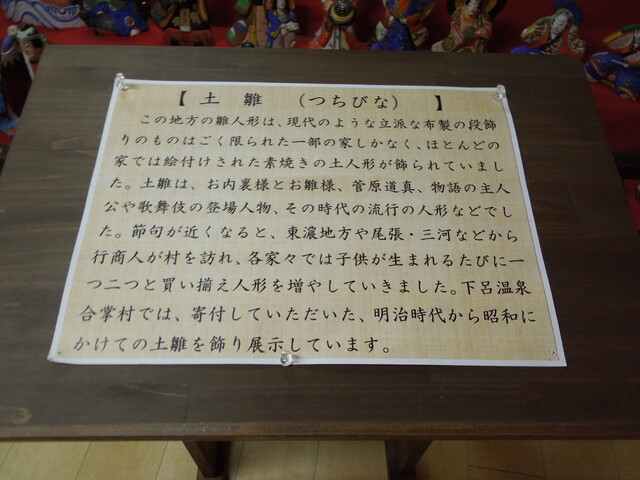 【 土 雛 （つちびな） 】
この地方の雛人形は、現代のような立派な布製の段飾
りのものはごく限られた一部の家しかなく、ほとんどの
家では絵付けされた素焼きの土人形が飾られていまし
た。土雛は、お内裏様とお雛様、菅原道真、物語の主人
公や歌舞伎の登場人物、その時代の流行の人形などでし
た。節句が近くなると、東濃地方や尾張・三河などから
行商人が村を訪れ、各家々では子供が生まれるたびに一
つ二つと買い揃え人形を増やしていきました。下呂温泉
合掌村では、寄付していただいた、明治時代から昭和に
かけての土雛を飾り展示しています。